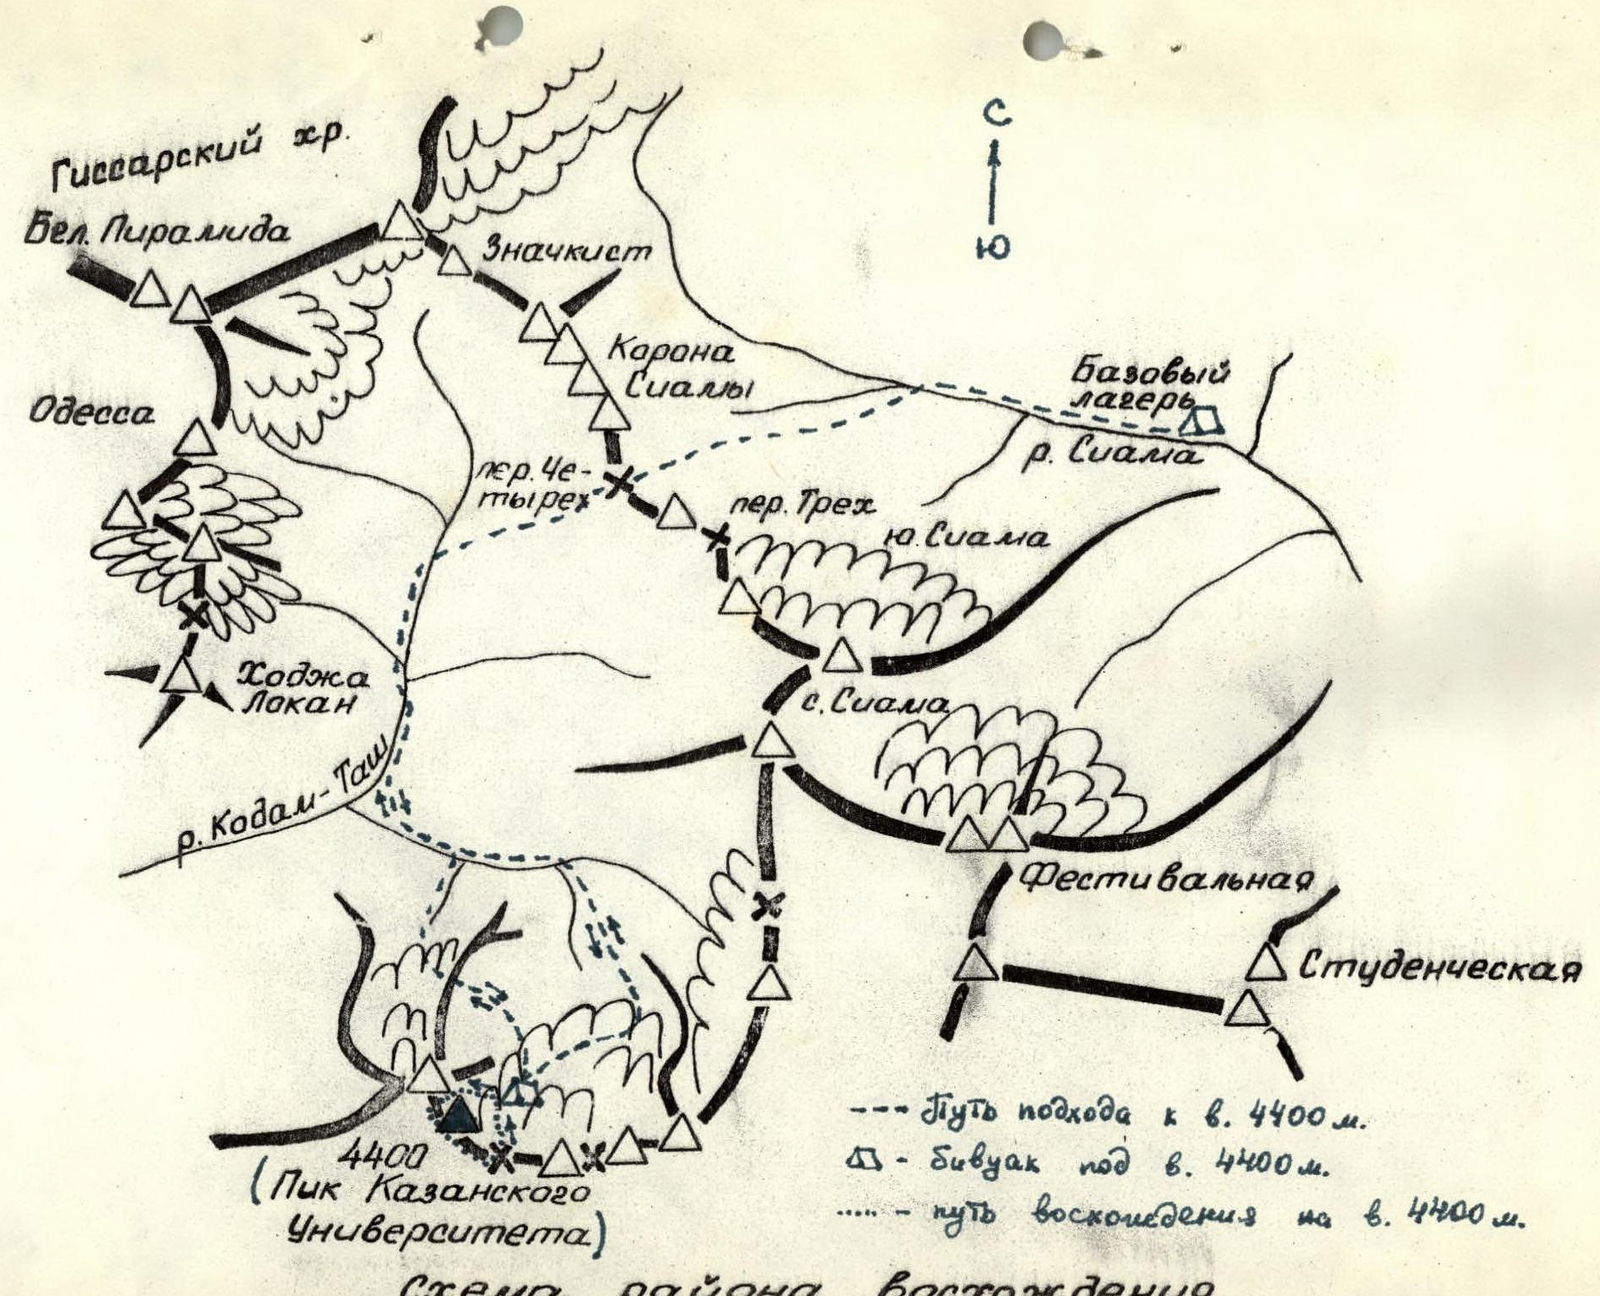 С
Ю
Гиссарский хр.
Бел. Пирамида
Значкист
Корона
Сиамы
Базовый
лагерь
Одесса
р. Сиама
пер. Че-
тырех
пер. Трех
ю. Сиама
Ходжа
Локан
с. Сиама
р. Кодам-Таш
Фестивальная
Студенческая
4400
(Пик Казанского
Университета)
--- Путь подхода к в. 4400 м.
- бивуак под в. 4400 м.
..... - путь восхождения на в. 4400 м.
Схема района восхождения